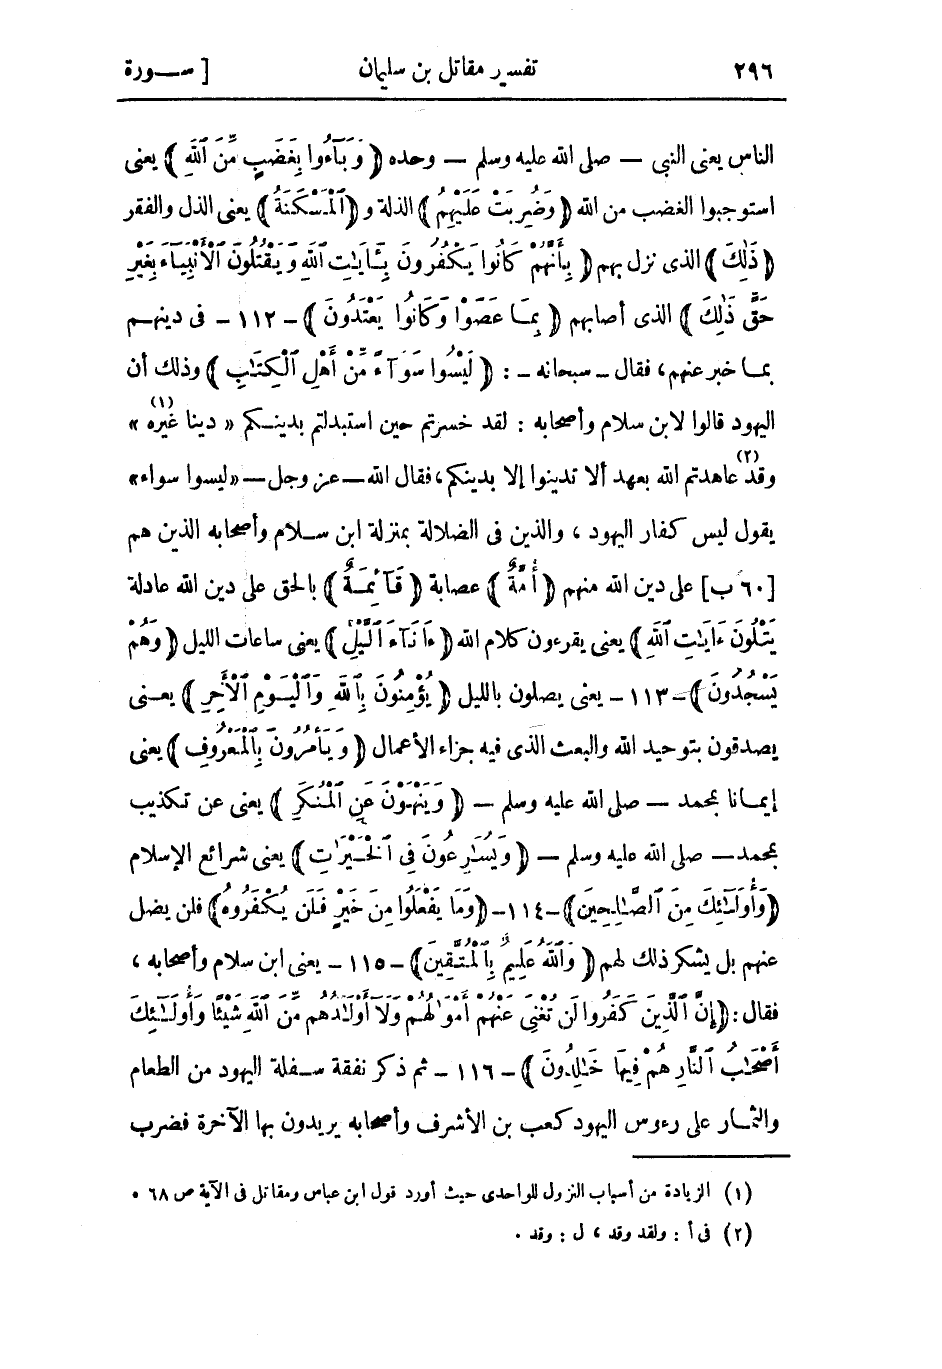 ٢٩٦
تفسير مقاتل بن سليمان
[ ســورة
الناس يعنى النبى — صلى الله عليه وسلم — وحده ﴿ وَبَآءُوا بِغَضَبٍ مِّنَ ٱللَّهِ ﴾ يعنى
استوجبوا الغضب من الله ﴿ وَضُرِبَتْ عَلَيْهِمُ ﴾ الذلة و ﴿ ٱلْمَسْكَنَةُ ﴾ يعنى الذل والفقر
﴿ ذَٰلِكَ ﴾ الذى نزل بهم ﴿ بِأَنَّهُمْ كَانُوا يَكْفُرُونَ بِـَٔايَـٰتِ ٱللَّهِ وَيَقْتُلُونَ ٱلْأَنْبِيَآءَ بِغَيْرِ
حَقٍّ ذَٰلِكَ ﴾ الذى أصابهم ﴿ بِمَا عَصَوْا وَّكَانُوا يَعْتَدُونَ ﴾ - ١١٢ - فى دينهم
بما خبر عنهم، فقال - سبحانه - : ﴿ لَيْسُوا سَوَآءً مِّنْ أَهْلِ ٱلْكِتَـٰبِ ﴾ وذلك أن
اليهود قالوا لابن سلام وأصحابه : لقد خسرتم حين استبدلتم بدينكم « دينا غيره (١) »
وقد (٢) عاهدتم الله بعهد ألا تدينوا إلا بدينكم، فقال الله — عز وجل — «ليسوا سواء»
يقول ليس كفار اليهود ، والذين فى الضلالة بمنزلة ابن سلام وأصحابه الذين هم
[٦٠ ب] على دين الله منهم ﴿ أُمَّةٌ ﴾ عصابة ﴿ قَآئِمَةٌ ﴾ بالحق على دين الله عادلة
يَتْلُونَ ءَايَـٰتِ ٱللَّهِ ﴾ يعنى يقرءون كلام الله ﴿ ءَانَآءَ ٱلَّيْلِ ﴾ يعنى ساعات الليل ﴿ وَهُمْ
يَسْجُدُونَ ﴾ - ١١٣ - يعنى يصلون بالليل ﴿ يُؤْمِنُونَ بِٱللَّهِ وَٱلْيَوْمِ ٱلْأَخِرِ ﴾ يعنى
يصدقون بتوحيد الله والبعث الذى فيه جزاء الأعمال ﴿ وَيَأْمُرُونَ بِٱلْمَعْرُوفِ ﴾ يعنى
إيمانا بمحمد — صلى الله عليه وسلم — ﴿ وَيَنْهَوْنَ عَنِ ٱلْمُنْكَرِ ﴾ يعنى عن تكذيب
بمحمد — صلى الله عليه وسلم — ﴿ وَيُسَـٰرِعُونَ فِى ٱلْخَيْرَٰتِ ﴾ يعنى شرائع الإسلام
﴿ وَأُولَـٰئِكَ مِنَ ٱلصَّـٰلِحِينَ ﴾ - ١١٤ - ﴿ وَمَا يَفْعَلُوا مِنْ خَيْرٍ فَلَن يُكْفَرُوهُ ﴾ فلن يضل
عنهم بل يشكر ذلك لهم ﴿ وَٱللَّهُ عَلِيمٌ بِٱلْمُتَّقِينَ ﴾ - ١١٥ - يعنى ابن سلام وأصحابه ،
فقال : ﴿ إِنَّ ٱلَّذِينَ كَفَرُوا لَن تُغْنِىَ عَنْهُمْ أَمْوَٰلُهُمْ وَلَآ أَوْلَـٰدُهُم مِّنَ ٱللَّهِ شَيْئًا وَأُولَـٰئِكَ
أَصْحَـٰبُ ٱلنَّارِ هُمْ فِيهَا خَـٰلِدُونَ ﴾ - ١١٦ - ثم ذكر نفقة سفلة اليهود من الطعام
والثمار على رءوس اليهود كعب بن الأشرف وأصحابه يريدون بها الآخرة فضرب
(١) الزيادة من أسباب النزول للواحدى حيث أورد قول ابن عباس ومقاتل فى الآية ص ٦٨ .
(٢) فى أ : ولقد وقد ، ل : وقد .